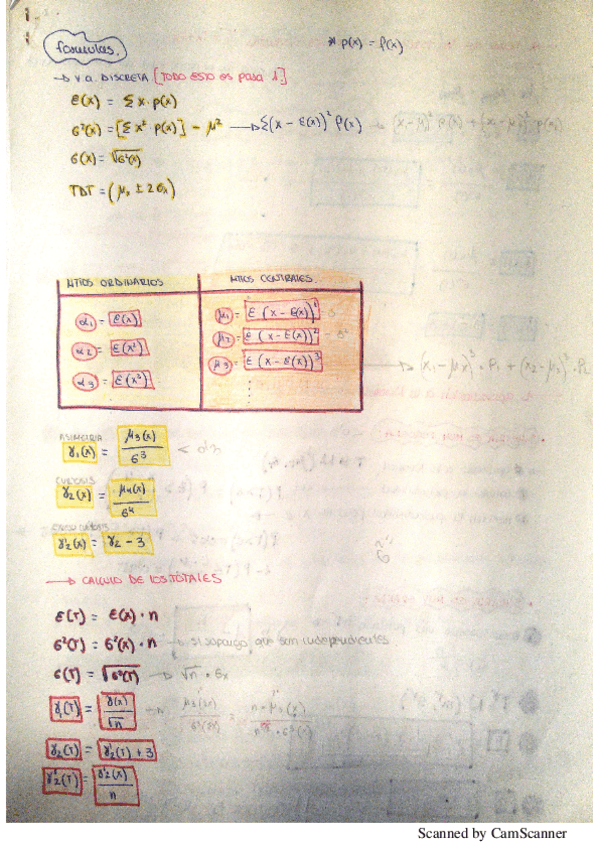 formulas.
* p(x) = P(x)
→ V.A. DISCRETA [TODO ESTO ES PARA 1.]
E(x) = Σ x · p(x)
σ²(x) = [Σ x² p(x)] - μ² → Σ(x - E(x))² P(x)
σ(x) = √σ²(x)
TDT = (μₓ ± 2σₓ)
MTOS ORDINARIOS
MTOS CENTRALES
α₁ = E(x)
μ₁ = E (x - E(x))¹
α₂ = E(x²)
μ₂ = E (x - E(x))²
α₃ = E(x³)
μ₃ = E (x - E(x))³
→ (x₁ - μx)³ · P₁ + (x₂ - μ₂)³ · P₂
ASIMETRIA
γ₁(x) = μ₃(x) / σ³
CURTOSIS
γ₂(x) = μ₄(x) / σ⁴
γ'₂(x) = γ₂ - 3
→ CALCULO DE LOS TOTALES
E(T) = E(x) · n
σ²(T) = σ²(x) · n → si supongo que son independientes
σ(T) = √σ²(T) → √n · σx
γ₁(T) = γ(x) / √n
γ₂(T) = γ'₂(T) + 3
γ'₂(T) = γ'₂(x) / n
Scanned by CamScanner